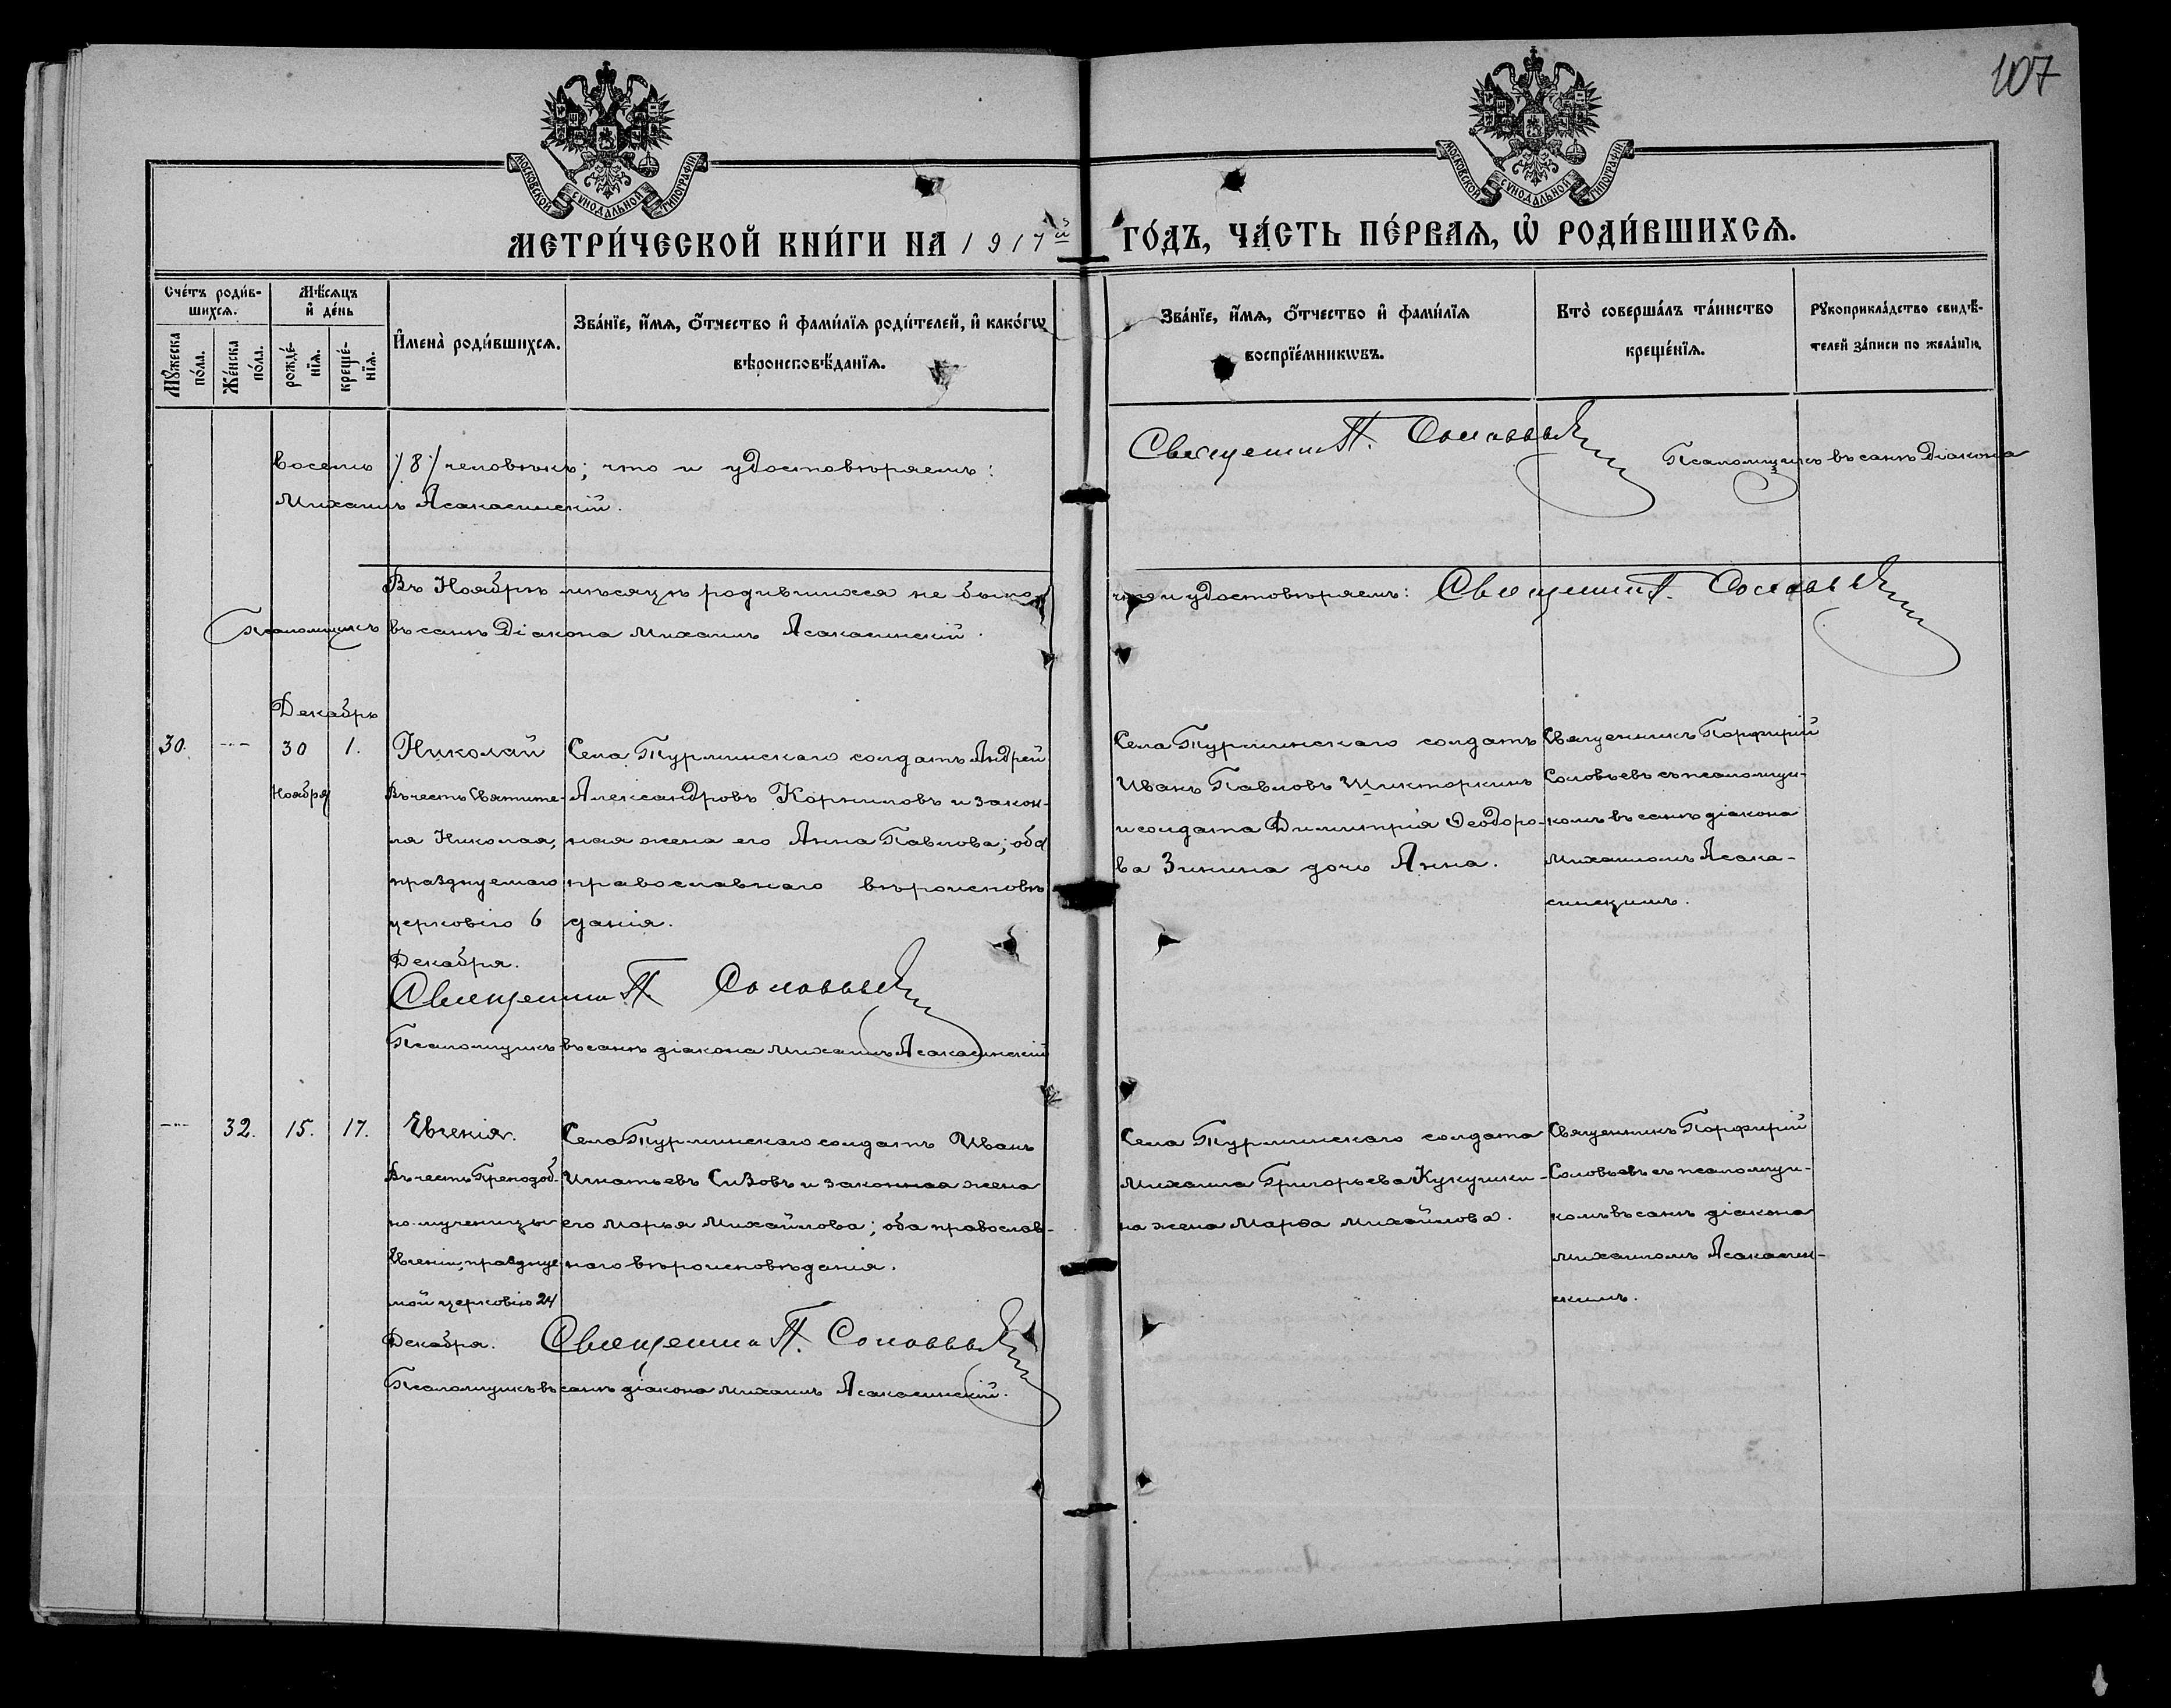 107
МОСКОВСКОЙ СѴНОДАЛЬНОЙ ТИПОГРАФІИ
МОСКОВСКОЙ СѴНОДАЛЬНОЙ ТИПОГРАФІИ
МЕТРИ́ЧЕСКОЙ КНИ́ГИ НА 1917й ГО́ДЪ, ЧА́СТЬ ПЕ́РВАѦ, Ѡ҆ РОДИ́ВШИХСѦ.
Сче́тъ роди́в-
шихсѧ.
Мꙋ́жеска
по́ла.
Же́нска
по́ла.
Мѣ́сѧцъ
и҆ де́нь
рожде́-
нїѧ.
креще́-
нїѧ.
И҆мена̀ роди́вшихсѧ.
Зва́нїе, и҆́мѧ, ѻ҆́тчество и҆ фами́лїѧ роди́телей, и҆ како́гѡ
вѣроисповѣ́данїѧ.
Зва́нїе, и҆́мѧ, ѻ҆́тчество и҆ фами́лїѧ
воспрїе́мникѡвъ.
Кто̀ соверша́лъ та́инство
креще́нїѧ.
Рꙋкоприкла́дство свидѣ́-
телей за́писи по жела́нїю.
восемь /8/ человѣкъ; что и удостовѣряемъ: Священникъ П. Соловьевъ Псаломщикъ въ санѣ Діакона
Михаилъ Асакасинскій.
Въ Ноябрѣ мѣсяцѣ родившихся не было что и удостовѣряемъ: Священникъ П. Соловьевъ
Псаломщикъ въ санѣ Діакона Михаилъ Асакасинскій.
Декабрь
30. --- 30 1.
Ноября
Николай
Въ честь Святите-
ля Николая,
празднуемаго
церковію 6
Декабря.
Села Турминскаго солдатъ Андрей
Александровъ Корниловъ и закон-
ная жена его Анна Павлова; оба
православнаго вѣроисповѣ
данія.
Села Турминскаго солдатъ
Иванъ Павловъ Шикторкинъ
и солдата Димитрія Ѳеодоро-
ва Зинина дочь Анна.
Священникъ Порфирій
Соловьевъ съ псаломщи-
комъ въ санѣ діакона
Михаиломъ Асака-
синскимъ.
Священникъ П. Соловьевъ
Псаломщикъ въ санѣ діакона Михаилъ Асакасинскій
--- 32. 15. 17.
Евгенія.
Въ честь Преподоб-
но-мученицы
Евгеніи, празднуе-
мой церковію 24
Декабря.
Села Турминскаго солдатъ Иванъ
Игнатьевъ Сизовъ и законная жена
его Марья Михайлова; оба православ-
наго вѣроисповѣданія.
Села Турминскаго солдата
Михаила Григорьева Кукушки-
на жена Марѳа Михайлова.
Священникъ Порфирій
Соловьевъ съ псаломщи-
комъ въ санѣ діакона
Михаиломъ Асакасин-
скимъ.
Священникъ П. Соловьевъ
Псаломщикъ въ санѣ діакона Михаилъ Асакасинскій.